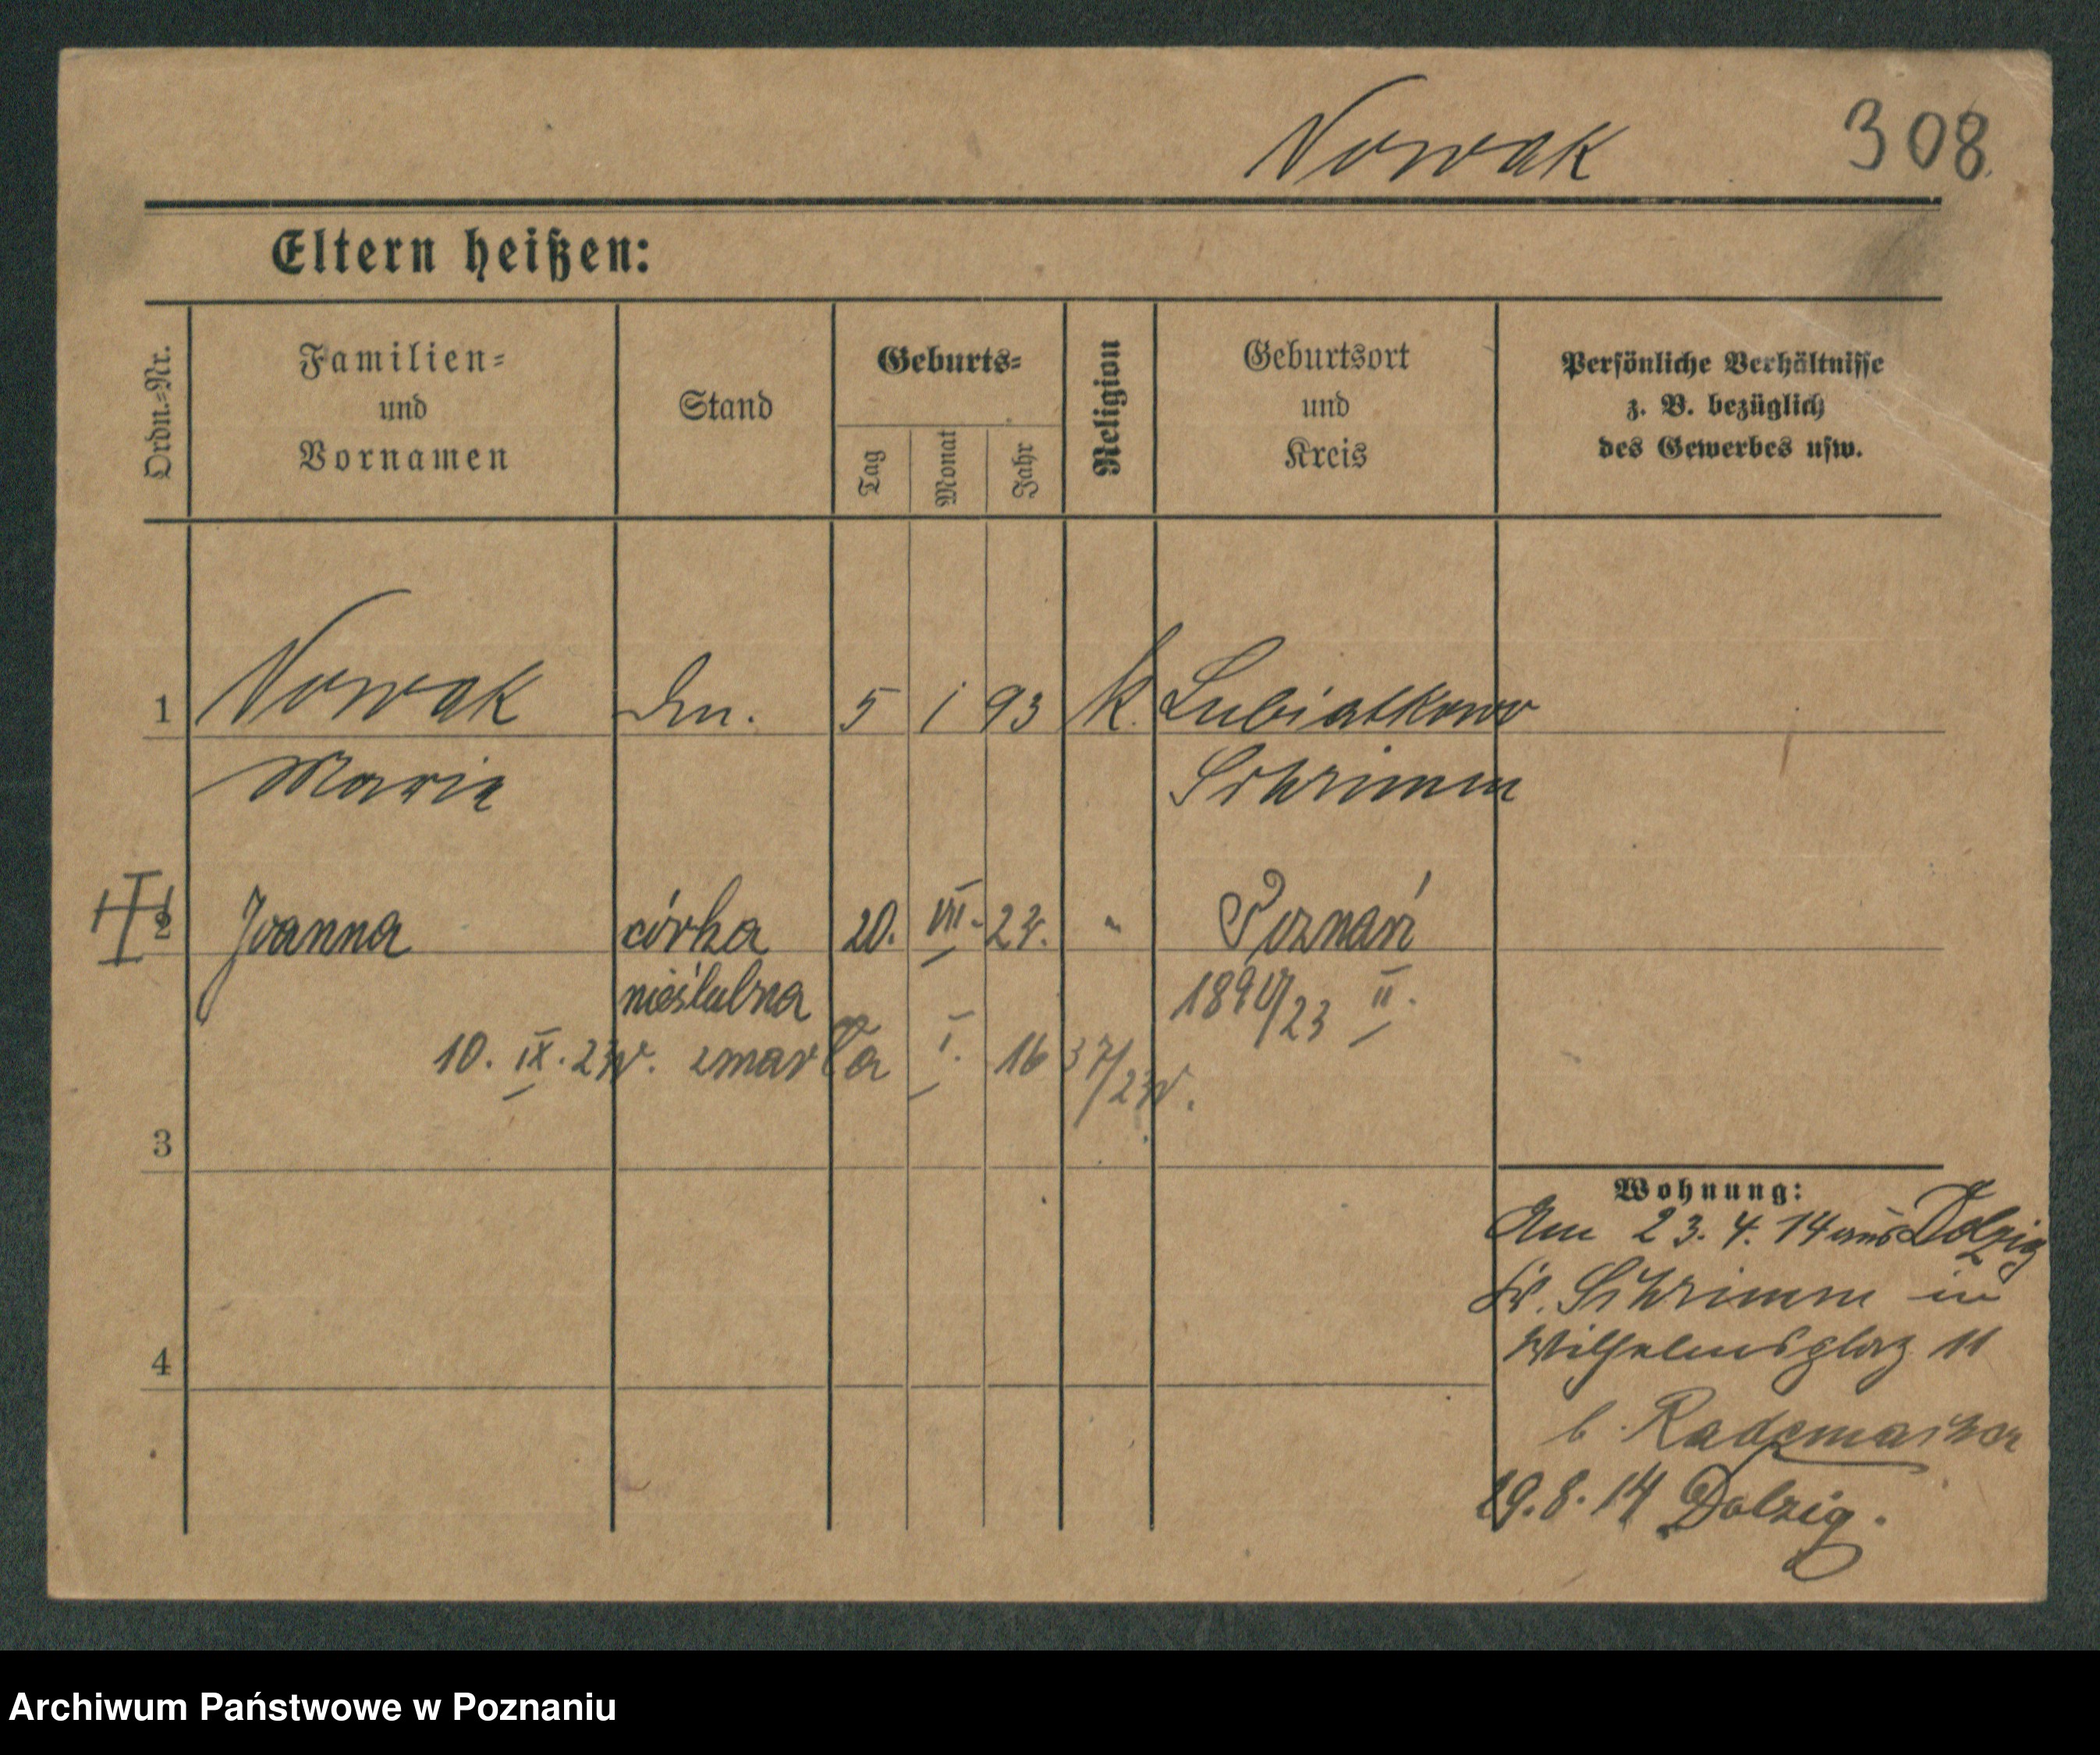 Nowak 308
Eltern heißen:
Ordn.-Nr.
Familien-
und
Vornamen
Stand
Geburts-
Tag
Monat
Jahr
Religion
Geburtsort
und
Kreis
Persönliche Verhältnisse
z. B. bezüglich
des Gewerbes usw.
1 Nowak 5 1 93 k. Lubiatkowo
Maria Schrimm
2 Joanna córka 20. VII. 23. " Poznań
nieślubna 1890/23 II.
10. IX. 23r. zmarła I. 1637/23r.
3
4
Wohnung:
Am 23. 4. 14 aus Dolzig
Kr. Schrimm in
Wilhelmsplatz 11
b. Radzmacher
29. 8. 14 Dolzig.
Archiwum Państwowe w Poznaniu